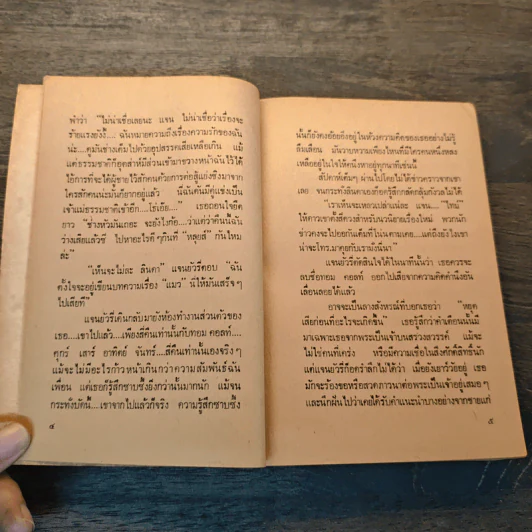 พำว่า "ไม่น่าเชื่อเลยนะ แจน ไม่น่าเชื่อว่าเรื่องจะ
ร้ายแรงยังงี้....ฉันหมายความถึงเรื่องความรักของฉัน
น่ะ....คมันช่างเต็มไปด้วยอุปสรรคเสียเหลือเกิน แม้
แต่ธรรมชาติก็อุตส่าห์มีส่วนเข้ามาขวางหน้าฉันไว้ได้
ใครสักคนน่ะมันก็ยากอยู่แล้ว นี่ฉันคันมีคู่แข่งเป็น
เจ้าแม่ธรรมชาติเข้าอีก....โธ่เอ๋ย...." เธอถอนใจอีก
ยาว "ช่างหัวมันเถอะ จะยังไงก้อ....ว่าแต่ว่าคืนนี้ฉัน
ว่างเสียแล้วซี ไปหาอะไรดีๆกินที่ "หลุยส์" กันไหม
ล่ะ"
"เห็นจะไม่ละ ลินดา" แจนยัวรีตอบ "ฉัน
ตั้งใจจะอยู่เขียนบทความเรื่อง "แมว" นี่ให้มันเสร็จๆ
ไปเสียที"
แจนยัวรีเดินกลับมายังห้องทำงานส่วนตัวของ
เธอ....เขาไปแล้ว....เพียงสี่คืนเท่านั้นกับทอม คอลท์....
ศุกร์ เสาร์ อาทิตย์ จันทร์....สี่คืนเท่านั้นเองจริงๆ
แม้จะไม่มีอะไรก้าวหน้าเกินกว่าความสัมพันธ์ฉัน
เพื่อน แต่เธอก็รู้สึกซาบซึ้งยิ่งกว่านั้นมากนัก แม้จน
กระทั่งบัดนี้....เขาจากไปแล้วก็จริง ความรู้สึกซาบซึ้ง
๔
นั้นก็ยังคงอ้อยอิ่งอยู่ในห้วงความคิดของเธออย่างไม่รู้
เหลืออยู่ในใจให้คนึงหาอยู่ทุกนาทีเช่นนี้
สัปดาห์เต็มๆ ผ่านไปโดยไม่ได้ข่าวคราวจากเขา
เลย
"เราเห็นจะเหงาเปล่าแน่ละ แจน...."
แจนยัวรีตัดสินใจได้ในนาทีนั้นว่า เธอควรจะ
ลบชื่อทอม คอลท์ ออกไปเสียจากความคิดคำนึงอัน
เลื่อนลอยได้แล้ว
อาจจะเป็นลางสังหรณ์ที่บอกเธอว่า "หยุด
เสียก่อนที่อะไรจะเกิดขึ้น" เธอรู้สึกว่าคำเตือนนั้นมี
มาเฉพาะเธอจากพระเป็นเจ้าบนสรวงสวรรค์ แม้จะ
ไม่ใช่คนที่เคร่ง หรือมีความเชื่อในสิ่งศักดิ์สิทธิ์นัก
แต่แจนยัวรีก็อดรำลึกไม่ได้ว่า เมื่อยังเยาว์วัยอยู่ เธอ
มักจะร้องขอหรือสวดภาวนาต่อพระเป็นเจ้าอยู่เสมอๆ
และนึกฝันไปว่าเคยได้รับคำแนะนำบางอย่างจากชายแก่
๕